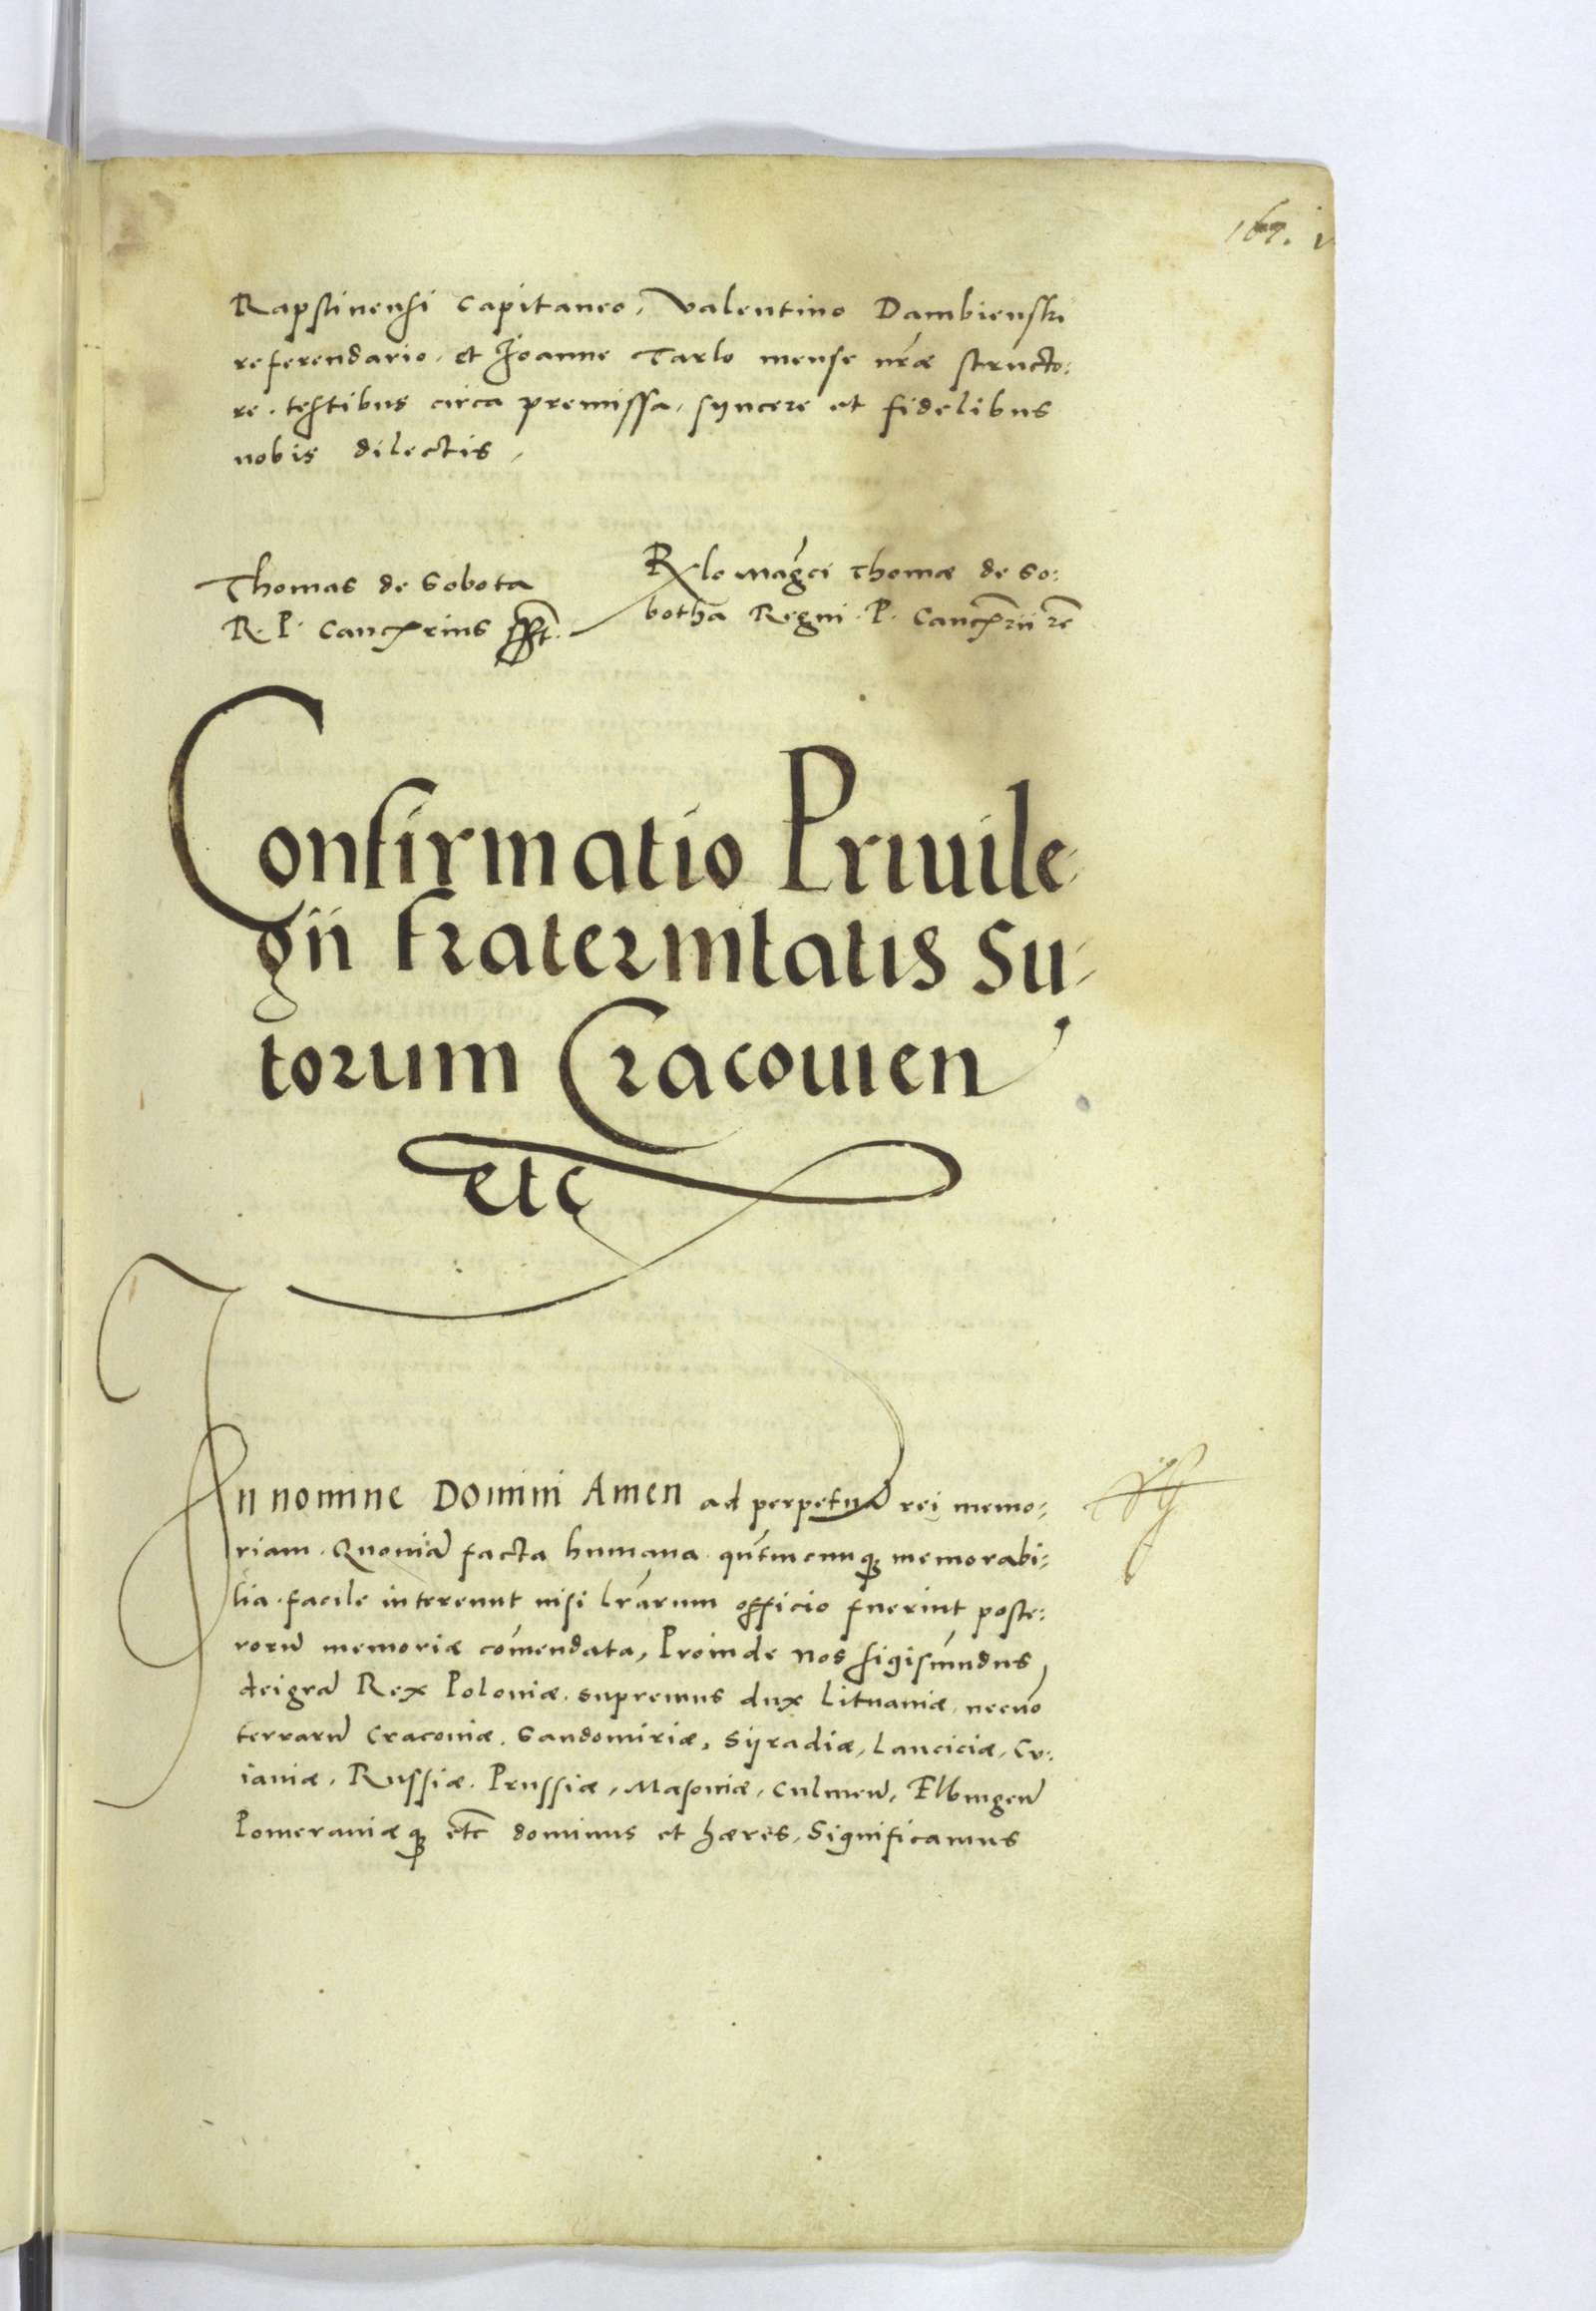 167.
Rapstinensi capitaneo, Valentino Dambienski
referendario. et Joanne Tarlo mense nræ structo:
re. testibus circa premissa, syncere et fidelibus
nobis dilectis,
Thomas de Sobota
R. P. Cancrius sspt.
Rlo magci Thomæ de So:
botha Regni. P. Cancrii rc
Confirmatio Priuile-
gii fraternitatis Su-
torum Cracouien
etc
In nomine Domini Amen ad perpetuā rei memo:
riam. Quoniā facta humana quātmcunqꝫ memorabi:
lia. facile intereunt nisi lrārum officio fuerint poste:
rorū memoriæ comendata, Proinde nos sigismundus
dei grā Rex Poloniæ. supremus dux Lituaniæ, necnō
terrarū Cracoviæ. Sandomiriæ, Syradiæ, Lanciciæ, Cu:
iaviæ, Russiæ. Prussiæ, Masoviæ, Culmeñ, Elbingeñ
Pomeraniæqꝫ etc dominus et hæres, Significamus